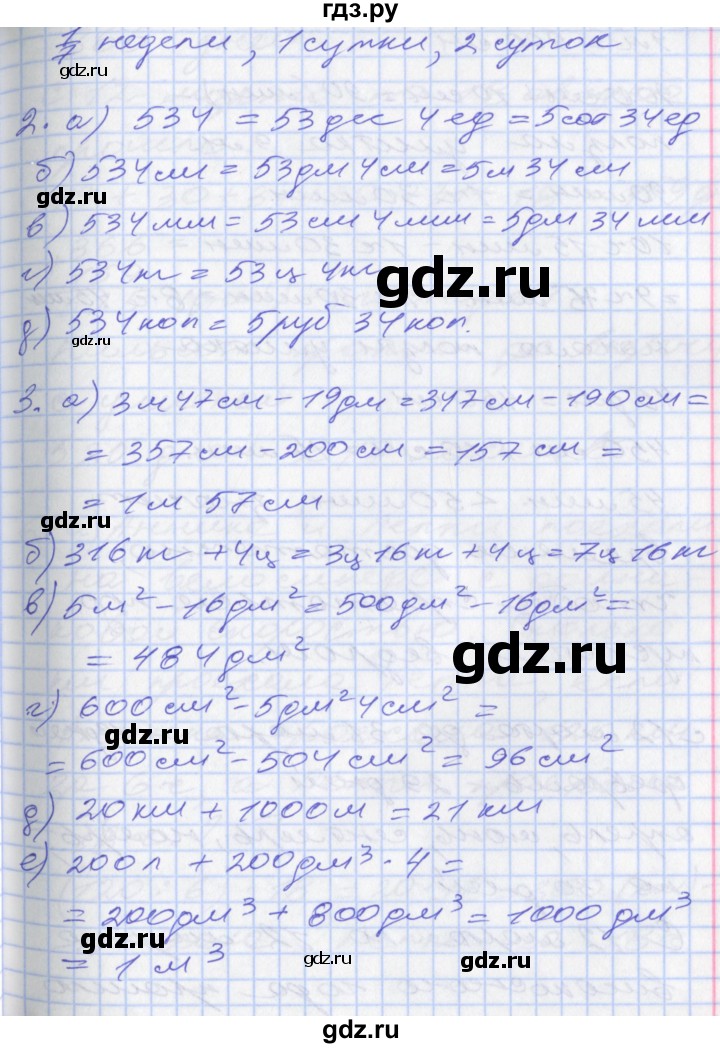 гдз.ру
1/7 недели, 1 сутки, 2 суток
2. а) 534 = 53 дес 4 ед = 5 сот 34 ед
б) 534 см = 53 дм 4 см = 5 м 34 см
gdz.ru
в) 534 мм = 53 см 4 мм = 5 дм 34 мм
г) 534 кг = 53 ц 4 кг
gdz.ru
д) 534 коп = 5 руб 34 коп.
3. а) 3 м 47 см - 19 дм = 347 см - 190 см =
= 357 см - 200 см = 157 см =
= 1 м 57 см
gdz.ru
б) 316 кг + 4 ц = 3 ц 16 кг + 4 ц = 7 ц 16 кг
в) 5 м² - 16 дм² = 500 дм² - 16 дм² =
= 484 дм²
gdz.ru
г) 600 см² - 5 дм² 4 см² =
gdz.ru
= 600 см² - 504 см² = 96 см²
д) 20 км + 1000 м = 21 км
е) 200 л + 200 дм³ · 4 =
= 200 дм³ + 800 дм³ = 1000 дм³
gdz.ru
= 1 м³
gdz.ru
gdz.ru
gdz.ru